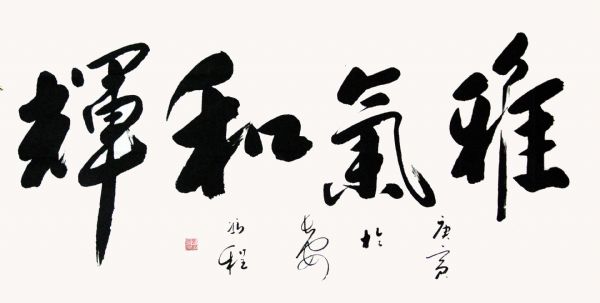 雅氣和輝
庚寅
於
長安
程